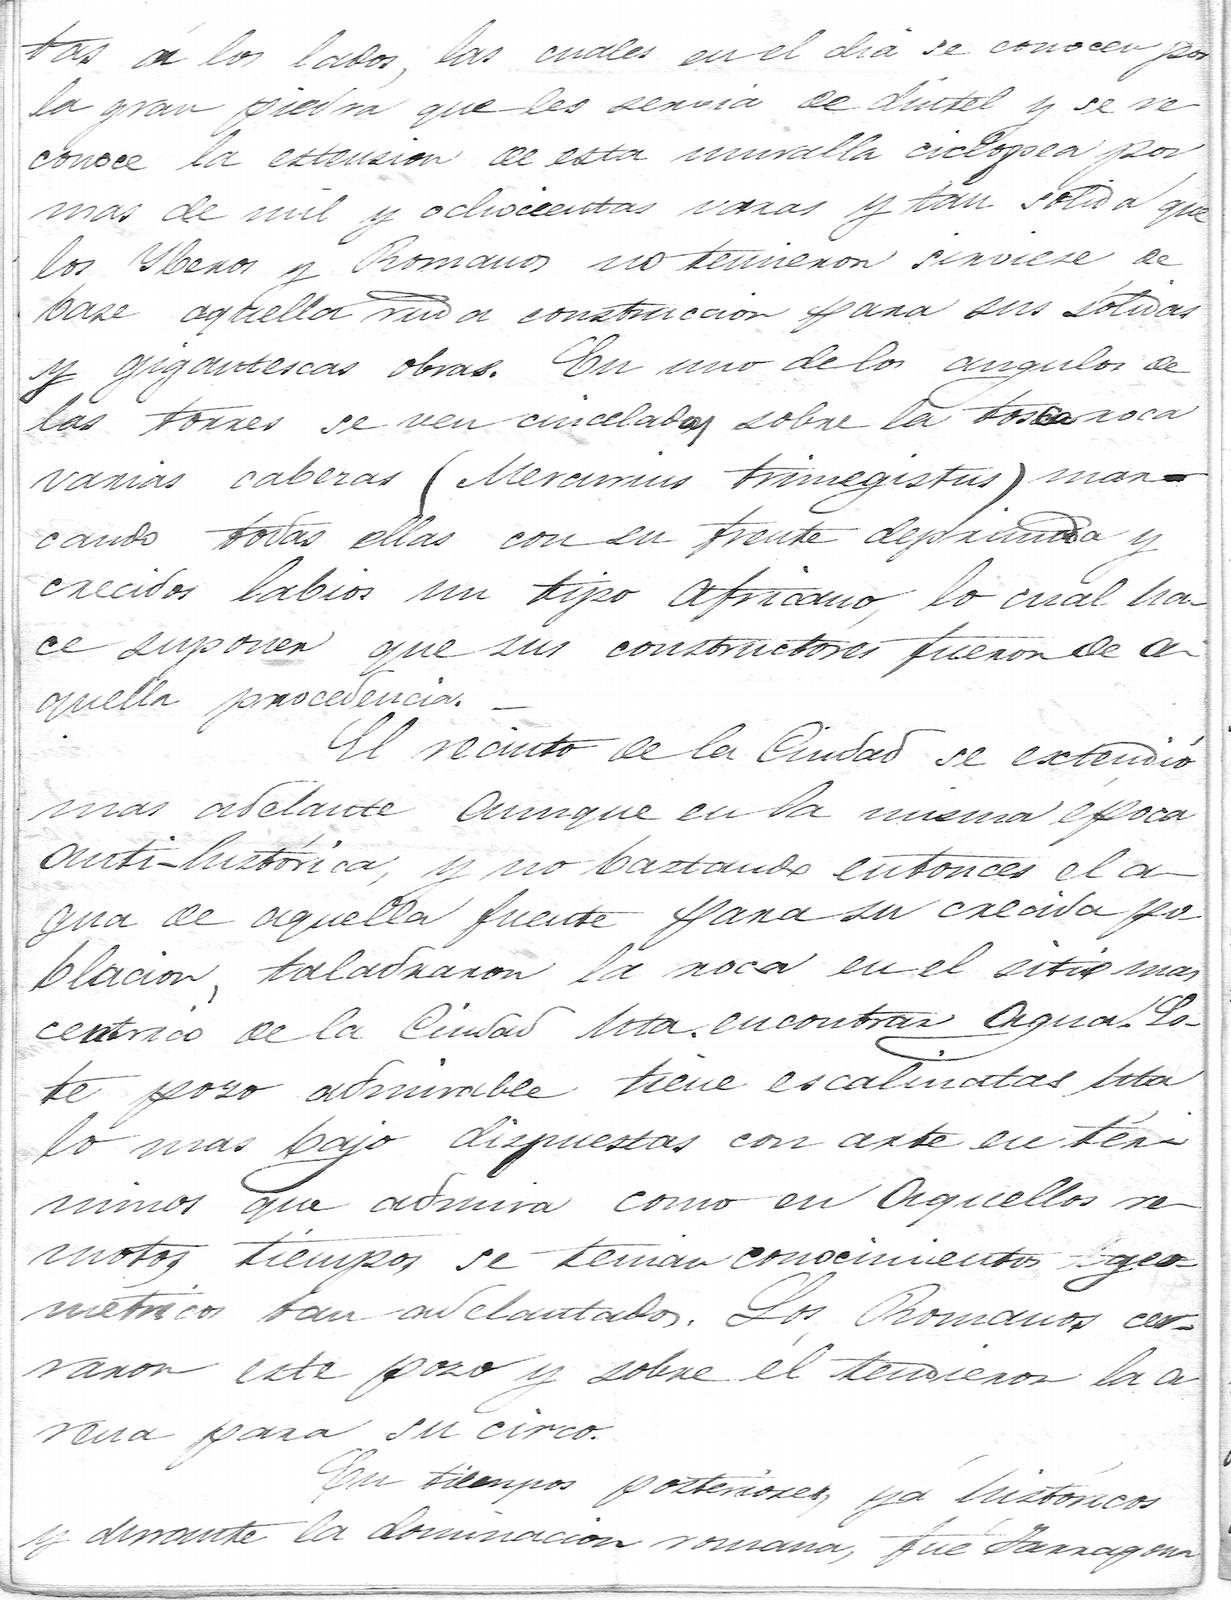 tas á los lados, las cuales en el dia se conocen por
la gran piedra que les servia de dintel y se re
conoce la extension de esta muralla ciclópea por
mas de mil y ochocientas varas y tan solida que
los Yberos y Romanos no temieron sirviese de
base aquella ruda construccion para sus sólidas
y gigantescas obras. En uno de los angulos de
las torres se ven cincelados sobre la tosca roca
varias cabezas (Mercurius trimegistus) mar-
cando todas ellas con su frente deprimida y
crecidos labios un tipo Africano, lo cual ha-
ce suponer que sus constructores fueron de a-
quella procedencia. —
El recinto de la Ciudad se extendió
mas adelante aunque en la misma época
anti-histórica, y no bastando entonces el a-
gua de aquella fuente para su crecida po
blacion, taladraron la roca en el sitio mas
centrico de la Ciudad hta. encontrar agua. Es-
te pozo admirable tiene escalinatas hta
lo mas bajo dispuestas con arte en tér-
minos que admira como en aquellos re-
motos tiempos se tenian conocimientos geo-
metricos tan adelantados. Los Romanos cer-
raron este pozo y sobre él tendieron la a
rena para su circo.
En tiempos posteriores, ya históricos
y durante la dominacion romana, fué Tarragona